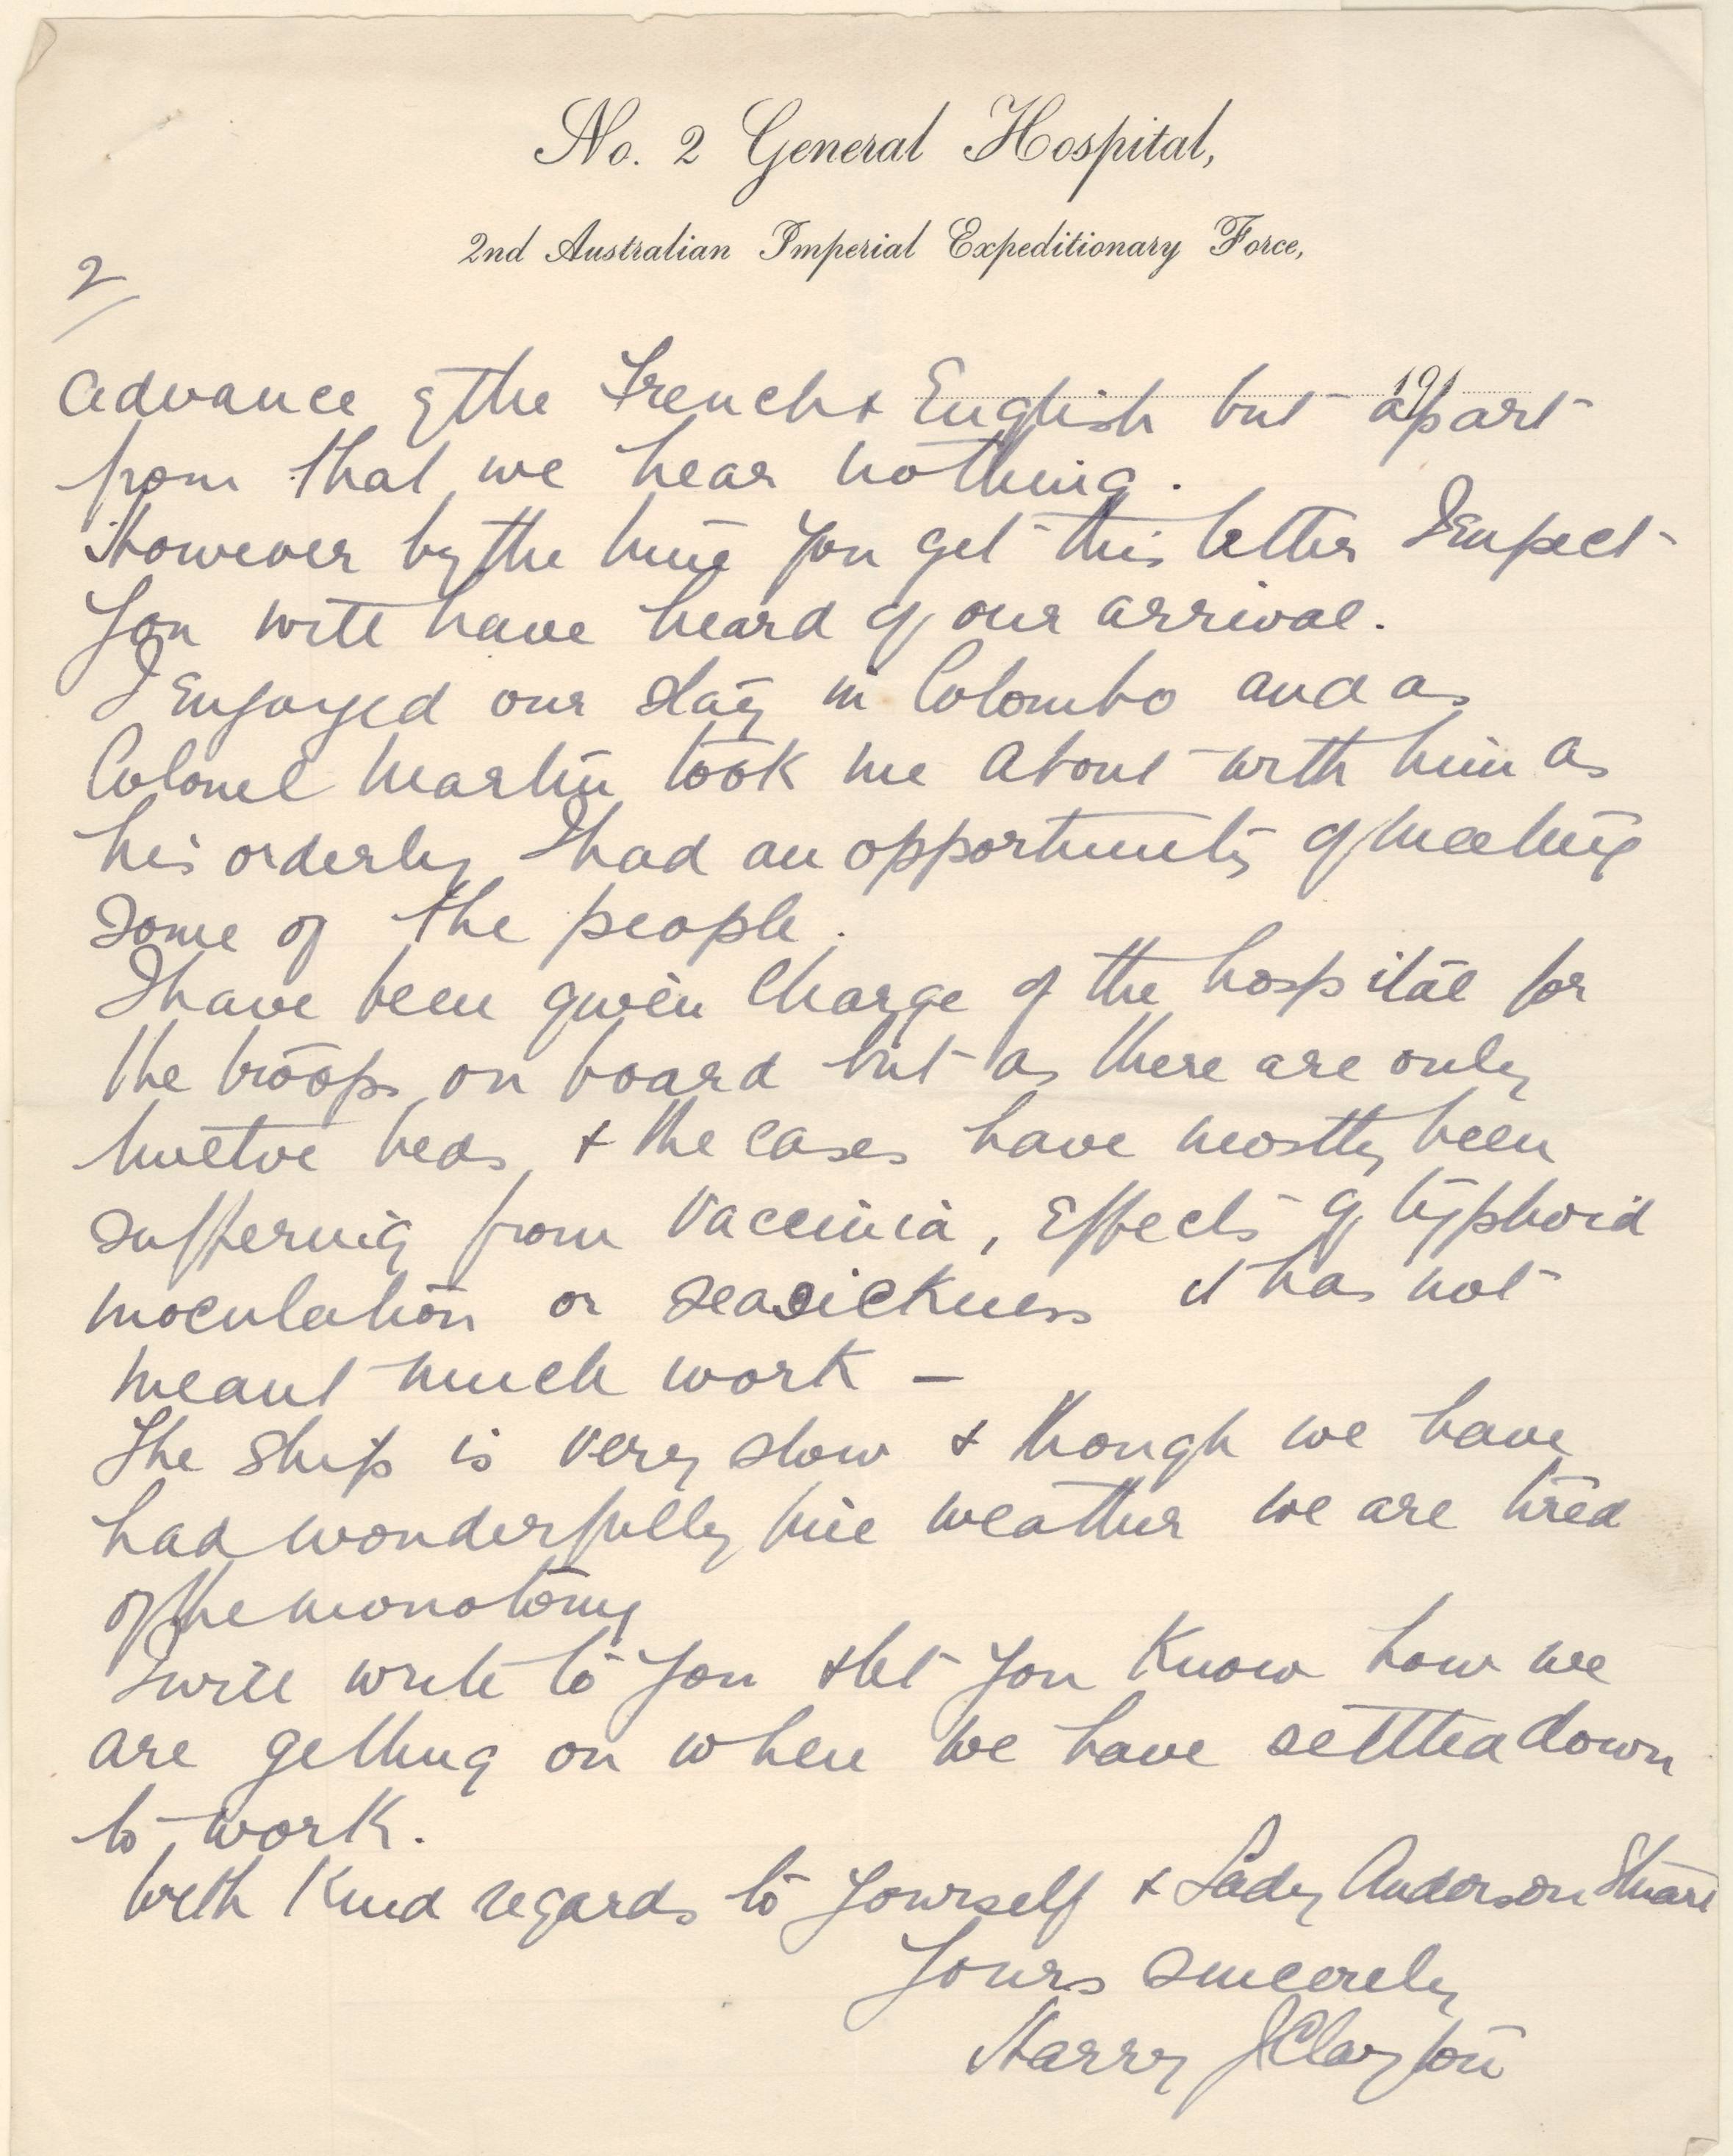 No. 2 General Hospital,
2nd Australian Imperial Expeditionary Force,
2
191
advance of the French & English but apart
from that we hear nothing.
However by the time you get this letter I expect
you will have heard of our arrival.
I enjoyed our stay in Colombo and as
Colonel Martin took me about with him as
his orderly I had an opportunity of meeting
some of the people.
I have been given charge of the hospital for
the troops on board but as there are only
twelve beds & the cases have mostly been
suffering from Vaccinia, effects of typhoid
inoculation or seasickness it has not
meant much work –
The ship is very slow & though we have
had wonderfully fine weather we are tired
of the monotony
I will write to you & let you know how we
are getting on when we have settled down
to work.
With kind regards to yourself & Lady Anderson Stuart
Yours sincerely
Harry J Clayton